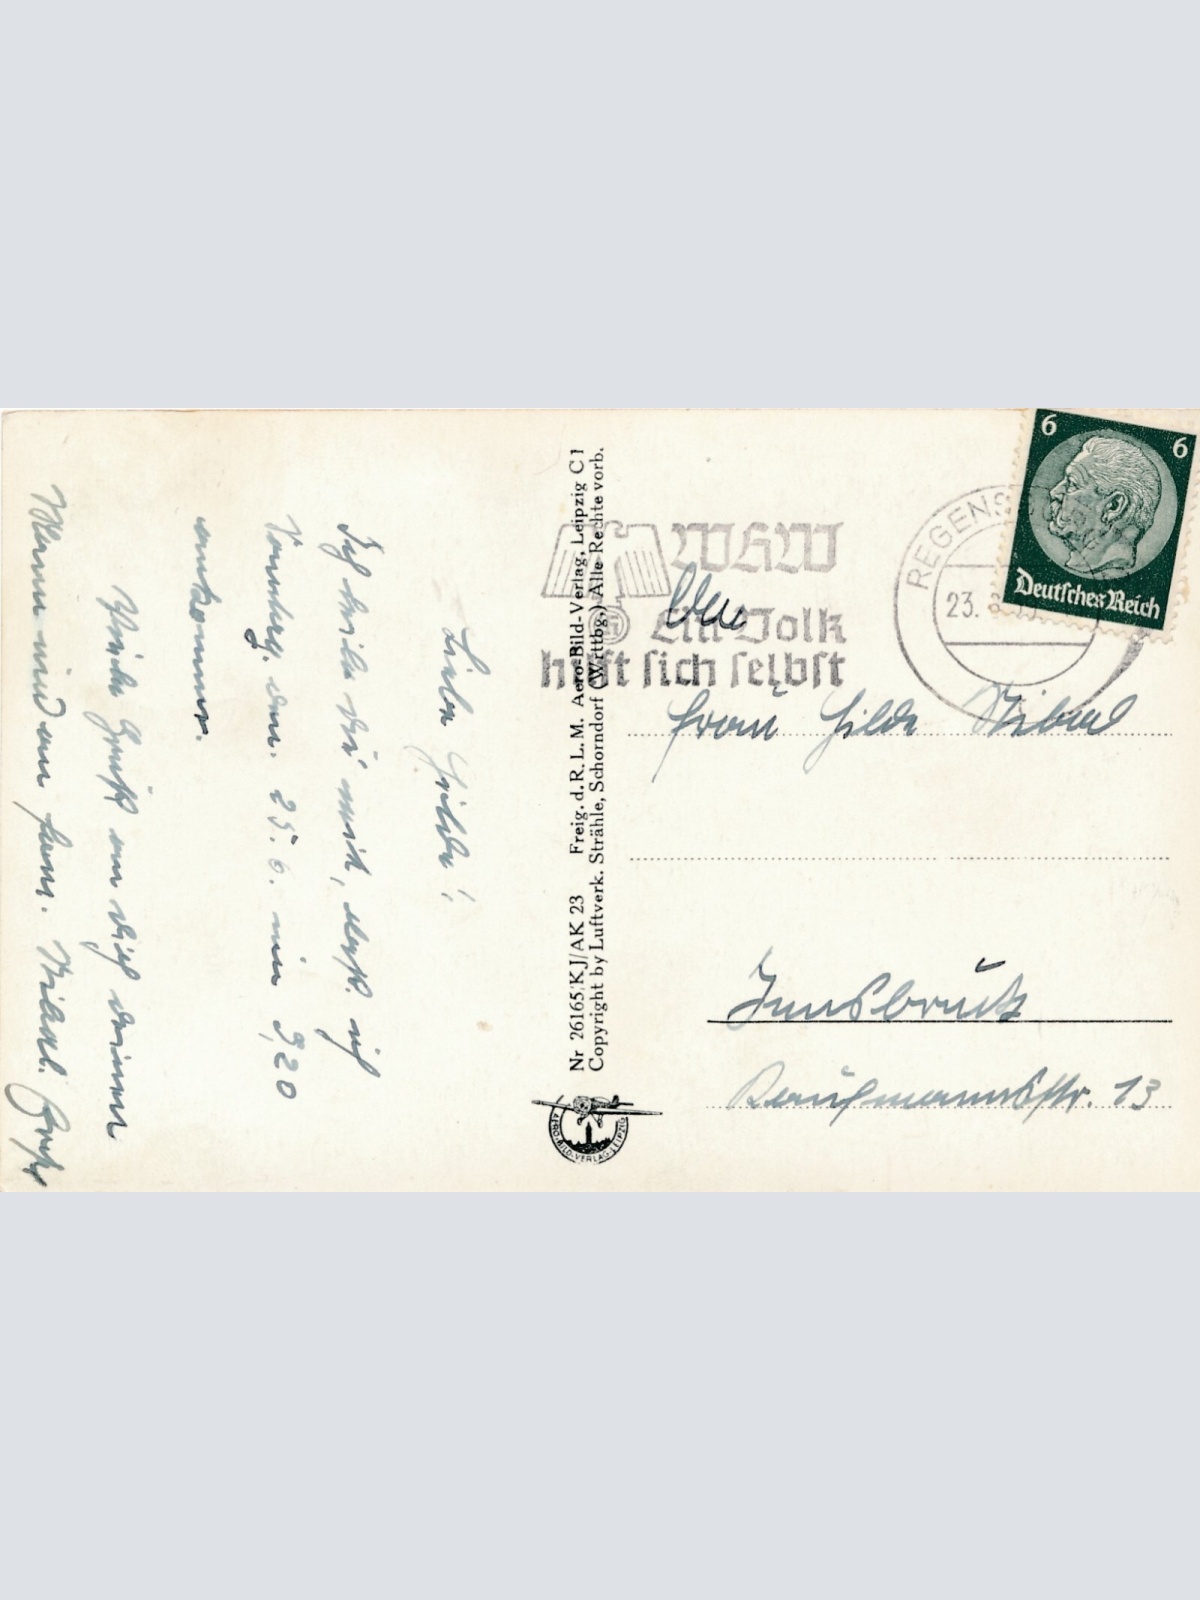 Liebe Hilde!
Ich teile dir mit, daß ich
Sonntag. den. 25. 6. um 3,20
ankomme.
Viele Grüße an dich deinen
Mann und an fam.
Nr 26165/KJ/AK 23 Freig. d. R. L. M. Aero-Bild-Verlag, Leipzig C 1
Copyright by Luftverk. Strähle, Schorndorf (Wrttbg.) Alle Rechte vorb.
AERO-BILD-VERLAG-LEIPZIG
WHW
Ein Volk
hilft sich selbst
REGENS
23.
6 6
Deutsches Reich
An
Frau Hilde
Innsbruck
Kaufmannstr. 13